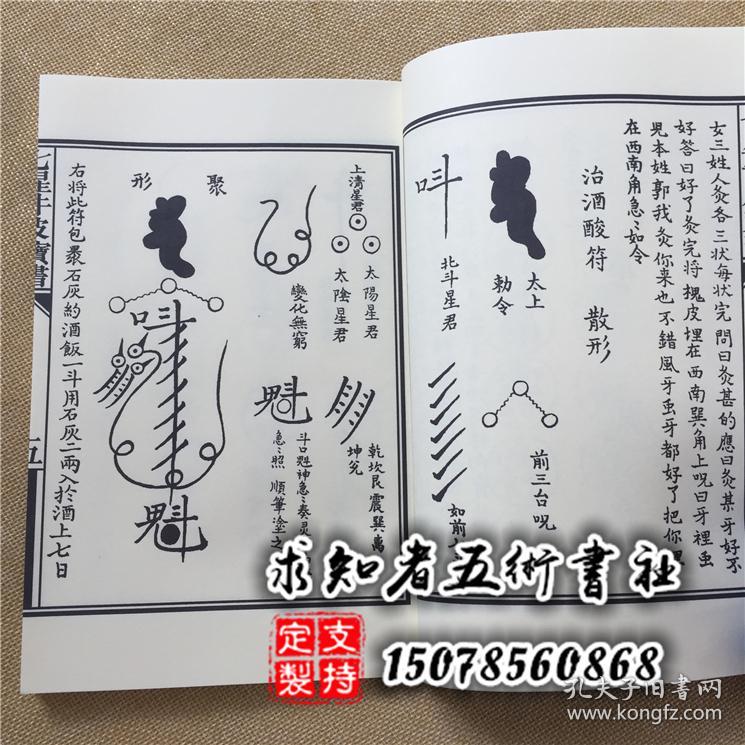 女三姓人灸各三状每状完問曰灸甚的應曰灸某牙好不
好答曰好了灸完將槐皮埋在西南巽角上呪曰牙裡虫
児本姓郭我灸你来也不錯風牙虫牙都好了把你
在西南角急〻如令
治酒酸符 散形
太上
勅令
前三台呪
北斗星君
如前
上清星君
太陽星君
太陰星君
乾坎艮震巽离
坤兊
變化無窮
魁
斗口魁神急〻奏灵
急〻照 順筆塗之
聚
形
魁
右将此符包
石灰約酒飯一斗用石灰二兩入於酒上七日
五
求知者五術書社
支持
定製
15078560868
孔夫子旧書网
www.kongfz.com